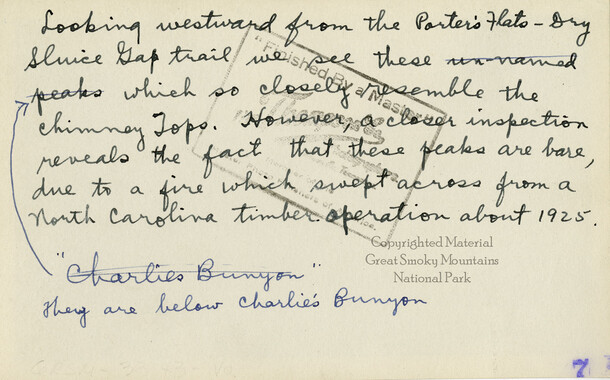 Looking westward from the Porter's Flats - Dry
Sluice Gap trail we see these un-named
peaks which so closely resemble the
chimney Tops. However, a closer inspection
reveals the fact that these peaks are bare,
due to a fire which swept across from a
North Carolina timber operation about 1925.
"Finished By a Master"
Copyrighted Material
Great Smoky Mountains
National Park
"Charlies Bunyon"
They are below Charlie's Bunyon
7